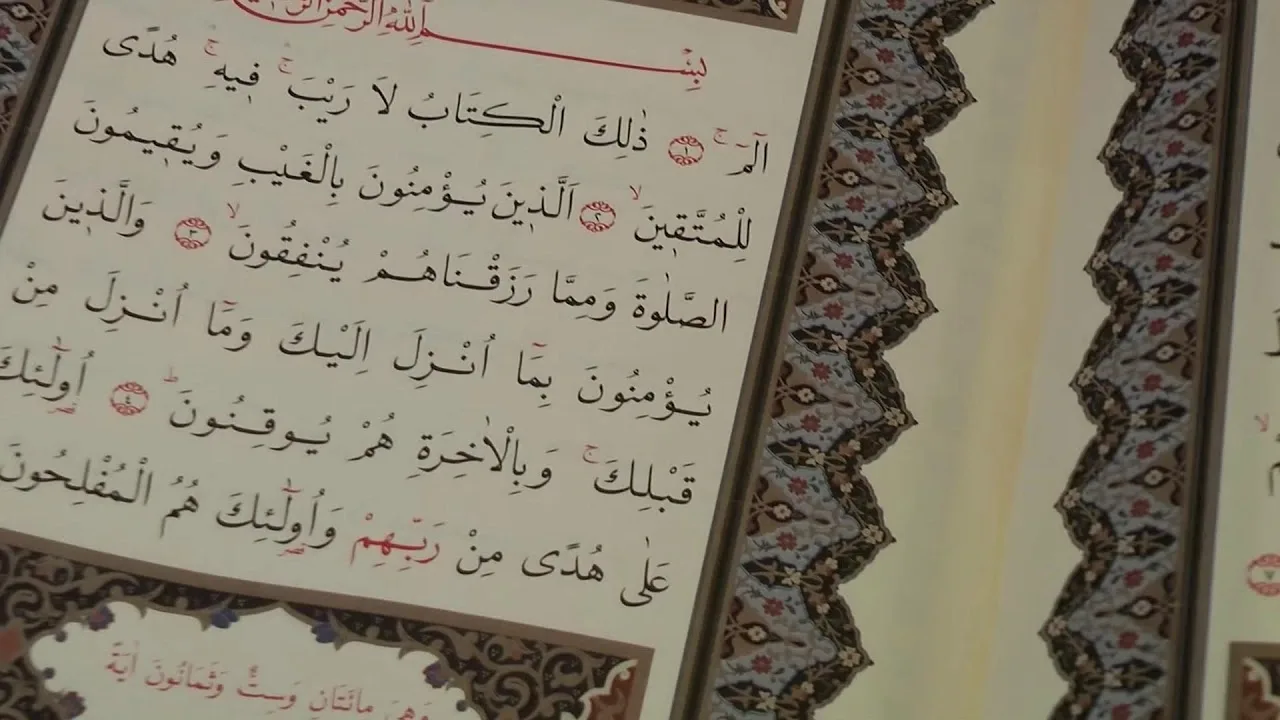 بِسْمِ اللّٰهِ الرَّحْمٰنِ الرَّحِيمِ
الٓمٓ ۚ ﴿١﴾ ذٰلِكَ الْكِتَابُ لَا رَيْبَ ۚ فٖيهِ ۚ هُدًى
لِلْمُتَّقٖينَ ۙ ﴿٢﴾ اَلَّذٖينَ يُؤْمِنُونَ بِالْغَيْبِ وَيُقٖيمُونَ
الصَّلٰوةَ وَمِمَّا رَزَقْنَاهُمْ يُنْفِقُونَ ۙ ﴿٣﴾ وَالَّذٖينَ
يُؤْمِنُونَ بِمَٓا اُنْزِلَ اِلَيْكَ وَمَٓا اُنْزِلَ مِنْ
قَبْلِكَ ۚ وَبِالْاٰخِرَةِ هُمْ يُوقِنُونَ ۜ ﴿٤﴾ اُولٰٓئِكَ
عَلٰى هُدًى مِنْ رَبِّهِمْ وَاُولٰٓئِكَ هُمُ الْمُفْلِحُونَ
وَهِيَ مِائَتَانِ وَسِتٌّ وَثَمَانُونَ اٰيَةً